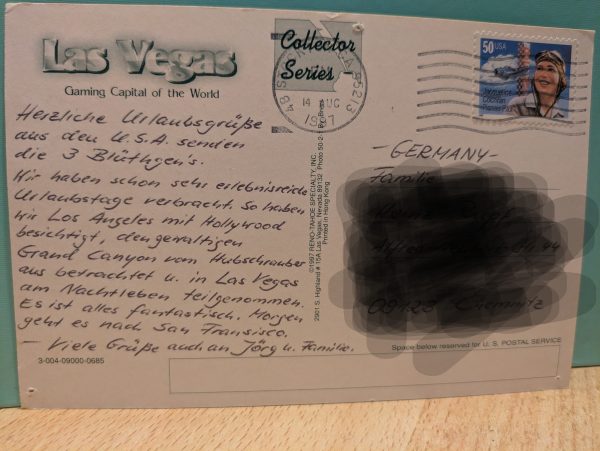 Las Vegas
Gaming Capital of the World
Collector
Series
14 AUG
1997
50 USA
Jacqueline
Cochran
Pioneer Pilot
Herzliche Urlaubsgrüße
aus den U.S.A. senden
die 3 Blüthgen's.
Wir haben schon sehr erlebnisreiche
Urlaubstage verbracht. So haben
wir Los Angeles mit Hollywood
besichtigt, den gewaltigen
Grand Canyon vom Hubschrauber
aus betrachtet u. in Las Vegas
am Nachtleben teilgenommen.
Es ist alles fantastisch. Morgen
geht es nach San Fransisco.
- Viele Grüße auch an Jörg u. Familie.
3-004-09000-0685
©1997 RENO-TAHOE SPECIALTY, INC.
2901 S. Highland # 15A Las Vegas, Nevada 89132 Photo 50-2-1
Printed in Hong Kong
- GERMANY -
Familie
Space below reserved for U.S. POSTAL SERVICE